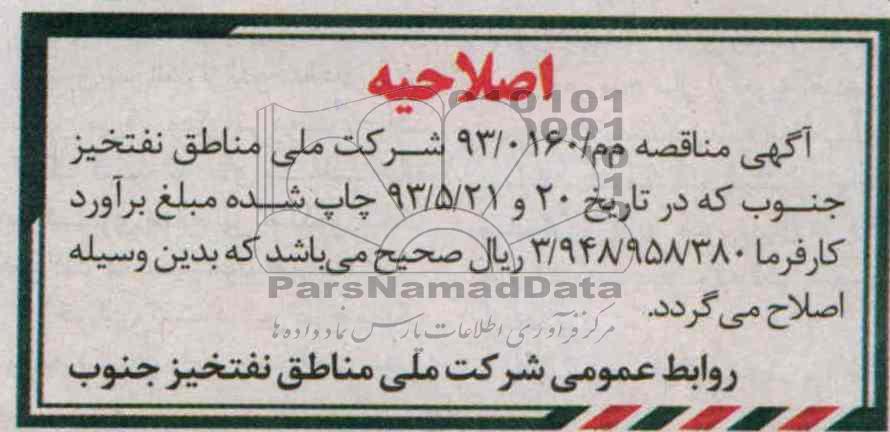 اصلاحیه
آگهی مناقصه مم/۹۳/۰۱۶۰ شرکت ملی مناطق نفتخیز
جنوب که در تاریخ ۲۰ و ۹۳/۵/۲۱ چاپ شده مبلغ برآورد
کارفرما ۳/۹۴۸/۹۵۸/۳۸۰ ریال صحیح می‌باشد که بدین وسیله
اصلاح می گردد.
ParsNamadData
مرکز فرآوری اطلاعات پارس نماد داده ها
روابط عمومی شرکت ملّی مناطق نفتخیز جنوب